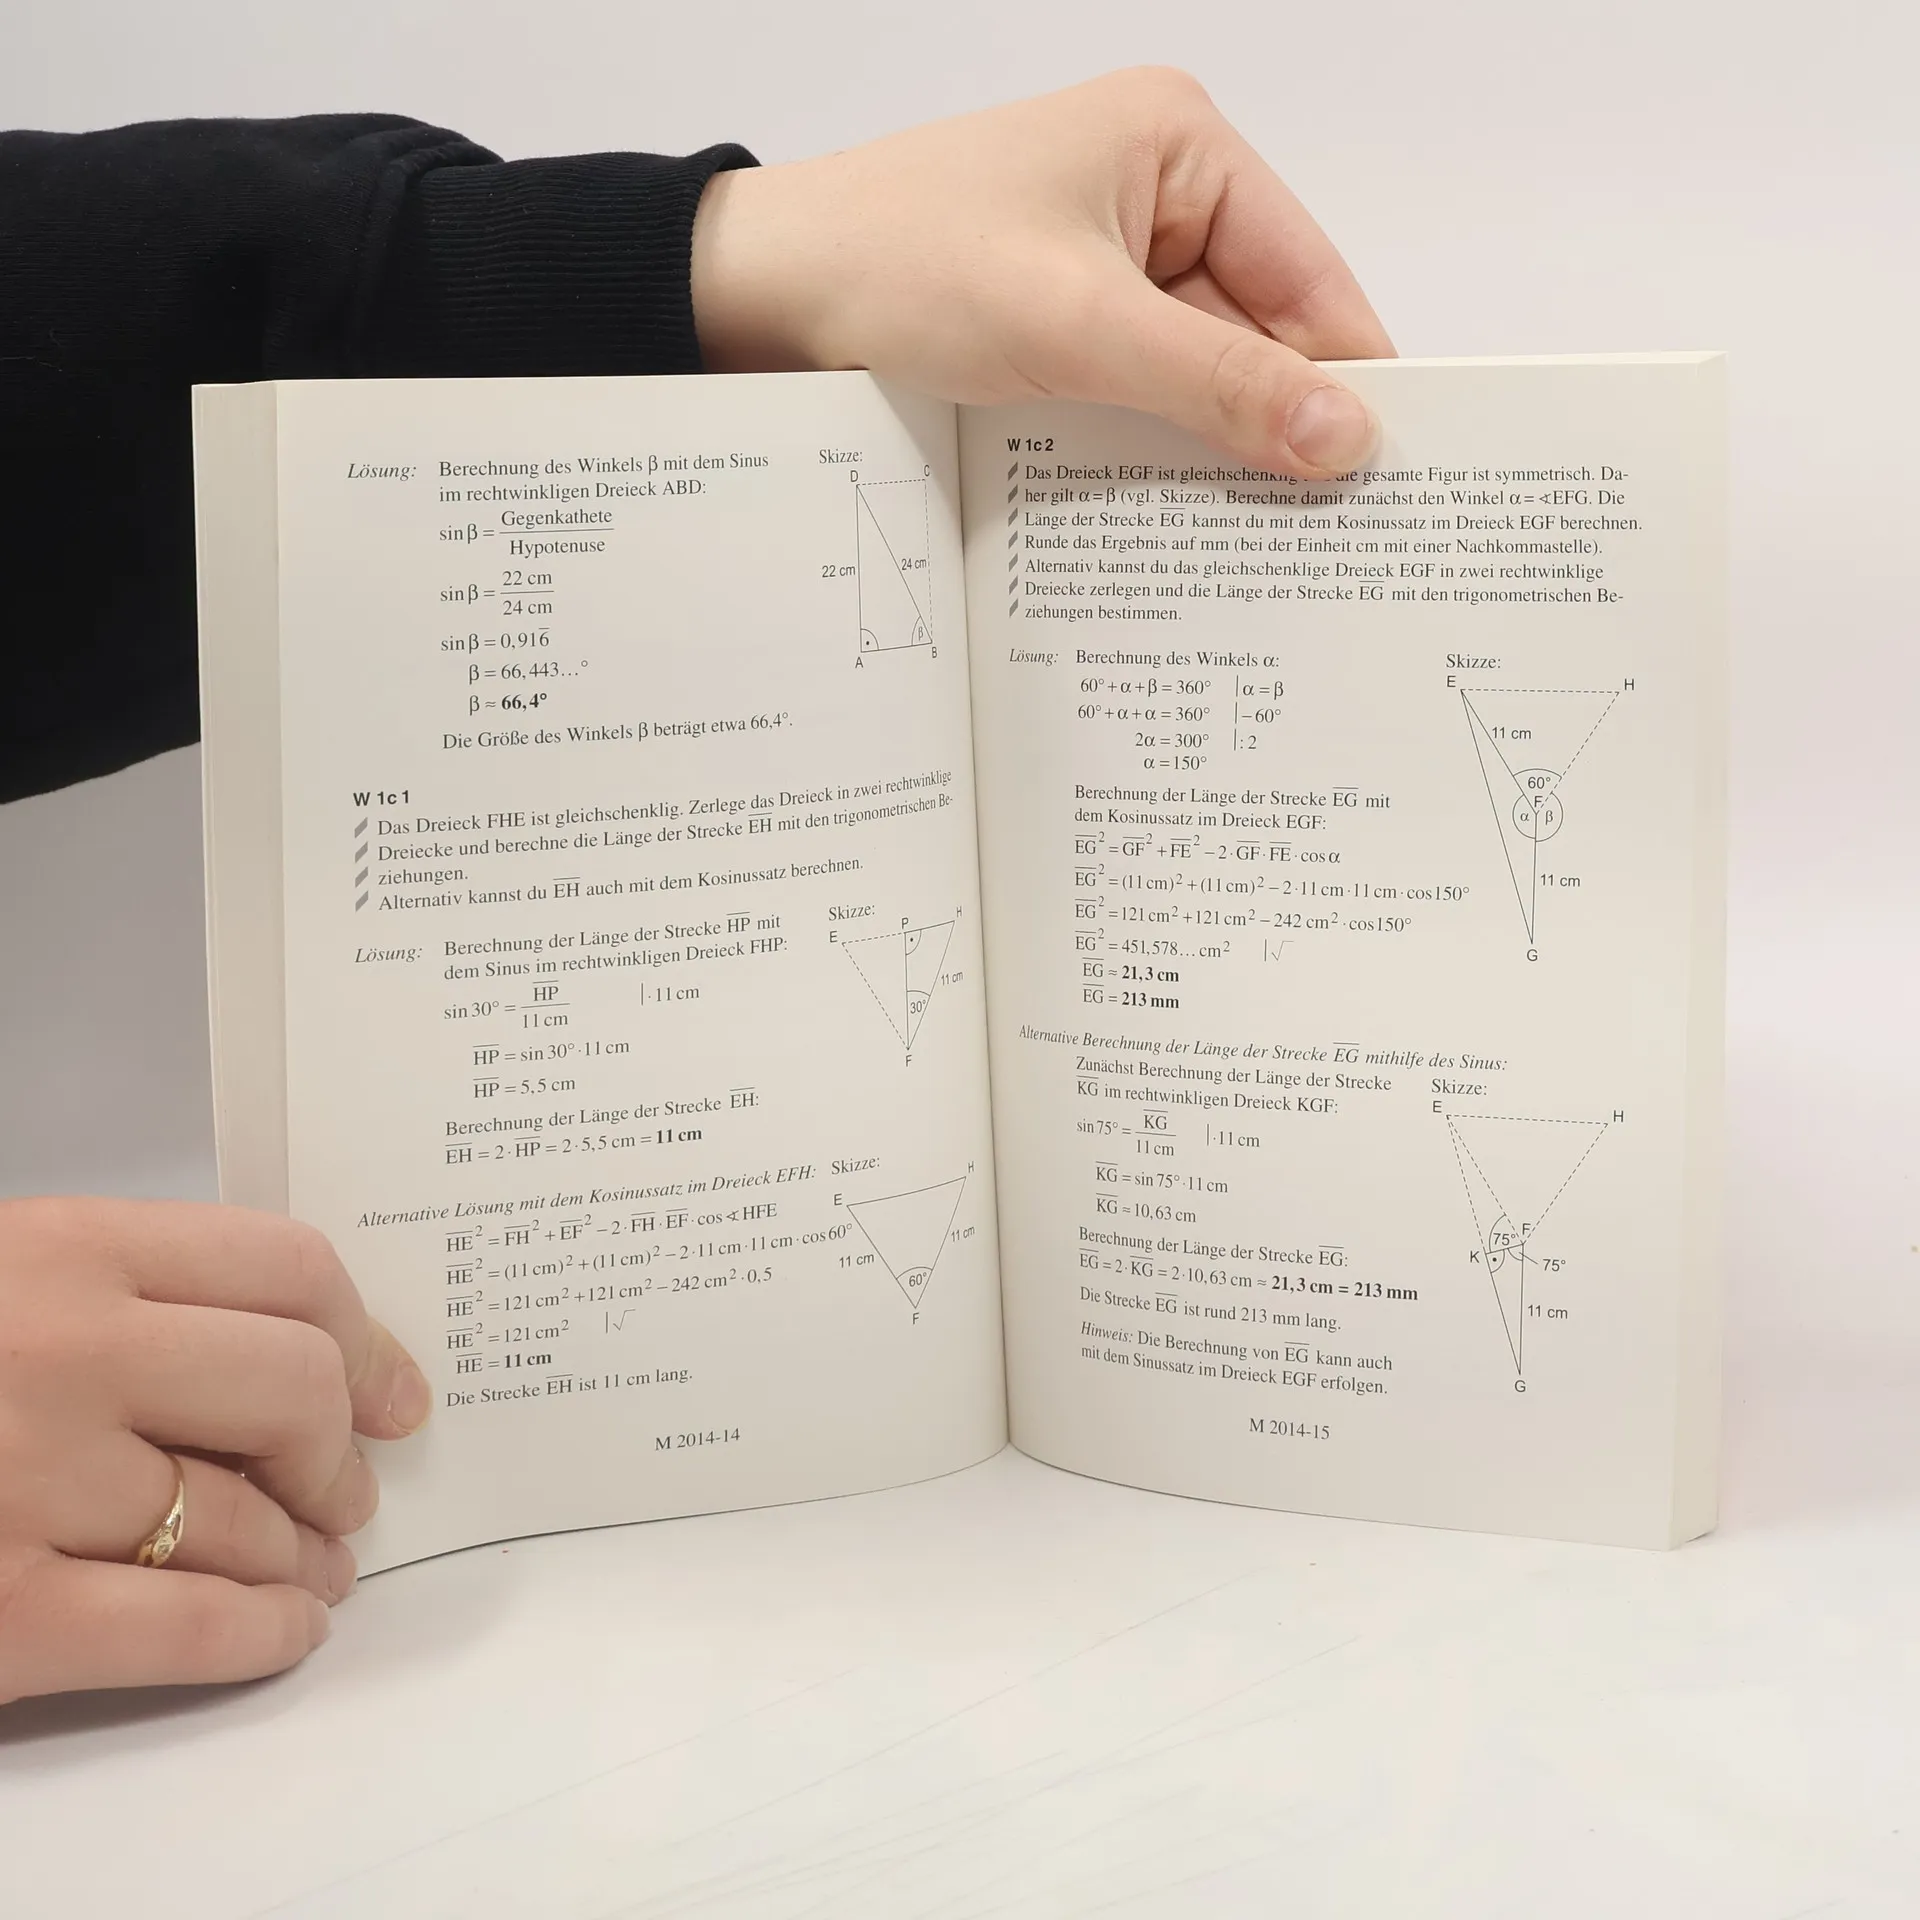 Lösung: Berechnung des Winkels β mit dem Sinus
im rechtwinkligen Dreieck ABD:
sin β = Gegenkathete / Hypotenuse
sin β = 22 cm / 24 cm
sin β = 0,916̅
β = 66,443...°
β ≈ 66,4°
Die Größe des Winkels β beträgt etwa 66,4°.
Skizze:
D C
22 cm 24 cm
β
A B
W 1c 1
Das Dreieck FHE ist gleichschenklig. Zerlege das Dreieck in zwei rechtwinklige
Dreiecke und berechne die Länge der Strecke E̅H̅ mit den trigonometrischen Be-
ziehungen.
Alternativ kannst du E̅H̅ auch mit dem Kosinussatz berechnen.
Lösung: Berechnung der Länge der Strecke H̅P̅ mit
dem Sinus im rechtwinkligen Dreieck FHP:
sin 30° = H̅P̅ / 11 cm |· 11 cm
H̅P̅ = sin 30° · 11 cm
H̅P̅ = 5,5 cm
Berechnung der Länge der Strecke E̅H̅:
E̅H̅ = 2 · H̅P̅ = 2 · 5,5 cm = 11 cm
Skizze:
E P H
11 cm
30°
F
Alternative Lösung mit dem Kosinussatz im Dreieck EFH:
H̅E̅² = F̅H̅² + E̅F̅² − 2 · F̅H̅ · E̅F̅ · cos ∢ HFE
H̅E̅² = (11 cm)² + (11 cm)² − 2 · 11 cm · 11 cm · cos 60°
H̅E̅² = 121 cm² + 121 cm² − 242 cm² · 0,5
H̅E̅² = 121 cm² |√
H̅E̅ = 11 cm
Die Strecke E̅H̅ ist 11 cm lang.
Skizze:
E H
11 cm 11 cm
60°
F
M 2014-14
W 1c 2
Das Dreieck EGF ist gleichschenklig die gesamte Figur ist symmetrisch. Da-
her gilt α = β (vgl. Skizze). Berechne damit zunächst den Winkel α = ∢EFG. Die
Länge der Strecke E̅G̅ kannst du mit dem Kosinussatz im Dreieck EGF berechnen.
Runde das Ergebnis auf mm (bei der Einheit cm mit einer Nachkommastelle).
Alternativ kannst du das gleichschenklige Dreieck EGF in zwei rechtwinklige
Dreiecke zerlegen und die Länge der Strecke E̅G̅ mit den trigonometrischen Be-
ziehungen bestimmen.
Lösung: Berechnung des Winkels α:
60° + α + β = 360° | α = β
60° + α + α = 360° | − 60°
2α = 300° | : 2
α = 150°
Berechnung der Länge der Strecke E̅G̅ mit
dem Kosinussatz im Dreieck EGF:
E̅G̅² = G̅F̅² + F̅E̅² − 2 · G̅F̅ · F̅E̅ · cos α
E̅G̅² = (11 cm)² + (11 cm)² − 2 · 11 cm · 11 cm · cos 150°
E̅G̅² = 121 cm² + 121 cm² − 242 cm² · cos 150°
E̅G̅² = 451,578... cm² |√
E̅G̅ ≈ 21,3 cm
E̅G̅ = 213 mm
Skizze:
E H
11 cm
60°
F
α β
11 cm
G
Alternative Berechnung der Länge der Strecke E̅G̅ mithilfe des Sinus:
Zunächst Berechnung der Länge der Strecke
K̅G̅ im rechtwinkligen Dreieck KGF:
sin 75° = K̅G̅ / 11 cm |· 11 cm
K̅G̅ = sin 75° · 11 cm
K̅G̅ ≈ 10,63 cm
Berechnung der Länge der Strecke E̅G̅:
E̅G̅ = 2 · K̅G̅ = 2 · 10,63 cm ≈ 21,3 cm = 213 mm
Die Strecke E̅G̅ ist rund 213 mm lang.
Hinweis: Die Berechnung von E̅G̅ kann auch
mit dem Sinussatz im Dreieck EGF erfolgen.
Skizze:
E H
75° F
K 75°
11 cm
G
M 2014-15